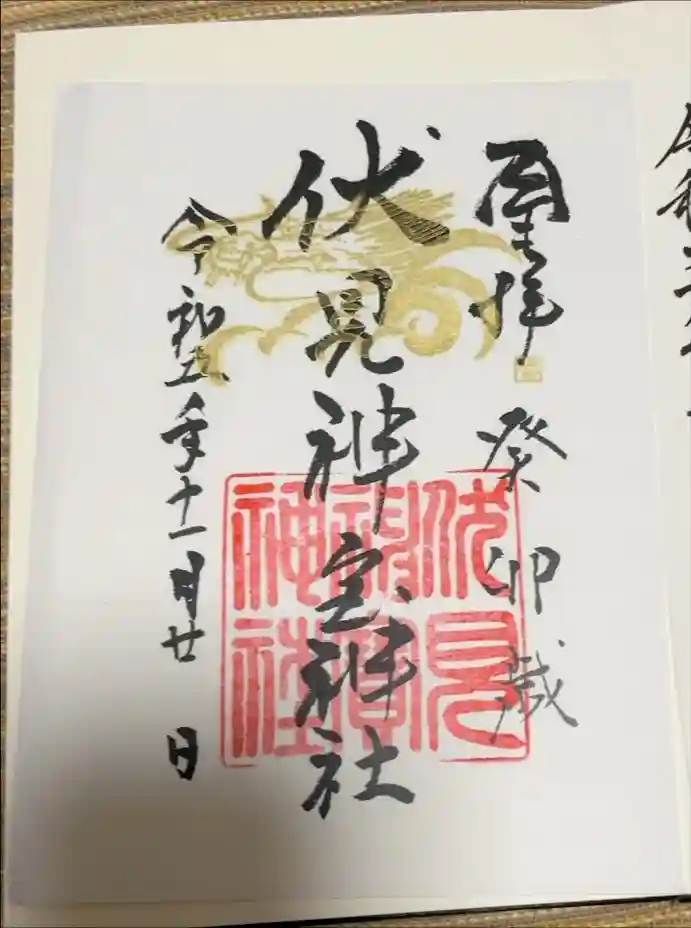 令和三
拝 癸卯歳
伏見神宝神社
令和五年十一月廿 日
伏見
神寶
神社